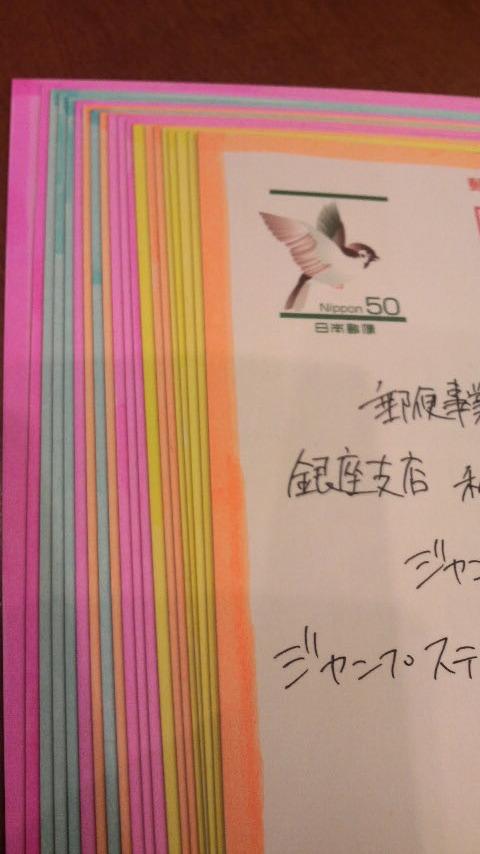 Nippon 50
日本郵便
郵便事業
銀座支店 私
ジャン
ジャンプステ